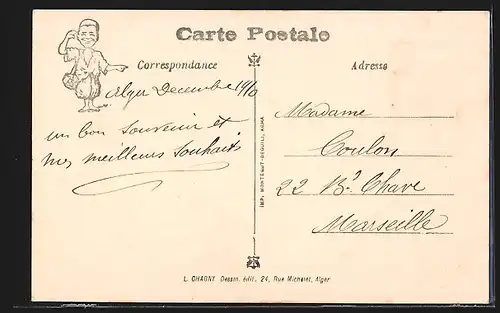 Carte Postale
Correspondance
Adresse
Alger Decembre 1910
un bon Souvenir et
mes meilleurs Souhaits
Madame
Coulon
22 Bd Chave
Marseille
L. CHAGNY Dessin. édit. 24, Rue Michelet, Alger